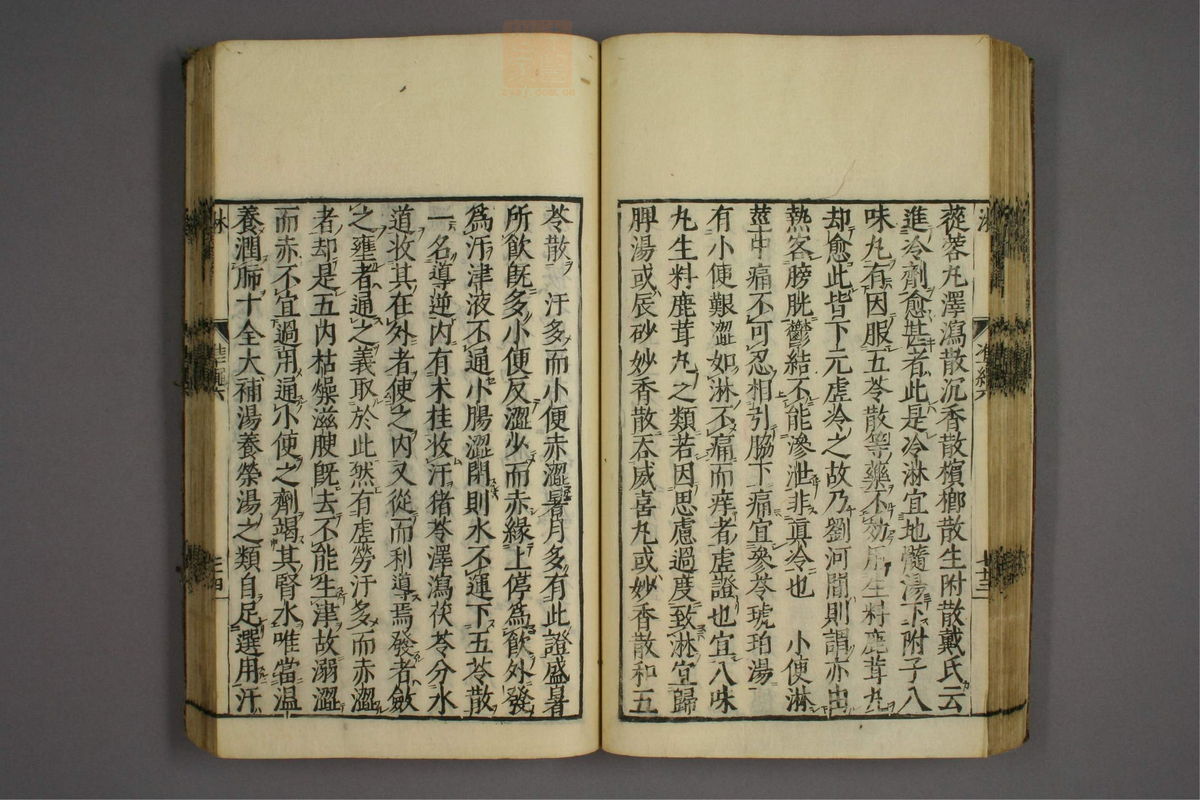 蓯蓉丸澤瀉散沉香散檳榔散生附散戴氏云
進冷劑愈甚者此是冷淋宜地髓湯下附子八
味丸有因服五苓散等藥不効用生料鹿茸丸
却愈此皆下元虛冷之故乃劉河間則謂亦出
熱客膀胱鬱結不能滲泄非真冷也　小便淋
莖中痛不可忍相引脇下痛宜參苓琥珀湯
有小便艱澀如淋不痛而痒者虛證也宜八味
丸生料鹿茸丸之類若因思慮過度致淋宜歸
脾湯或辰砂妙香散吞威喜丸或妙香散和五
苓散　汗多而小便赤澀暑月多有此證盛暑
所飲既多小便反澀少而赤緣上停為飲外發
為汗津液不通小腸澀閉則水不運下五苓散
一名導逆內有朮桂收汗猪苓澤瀉茯苓分水
道收其在外者使之內又從而利導焉發者斂
之壅者通之義取於此然有虛勞汗多而赤澀
者却是五內枯燥滋腴既去不能生津故溺澀
而赤不宜過用通小便之劑竭其腎水唯當溫
養潤肺十全大補湯養榮湯之類自足選用汗
淋